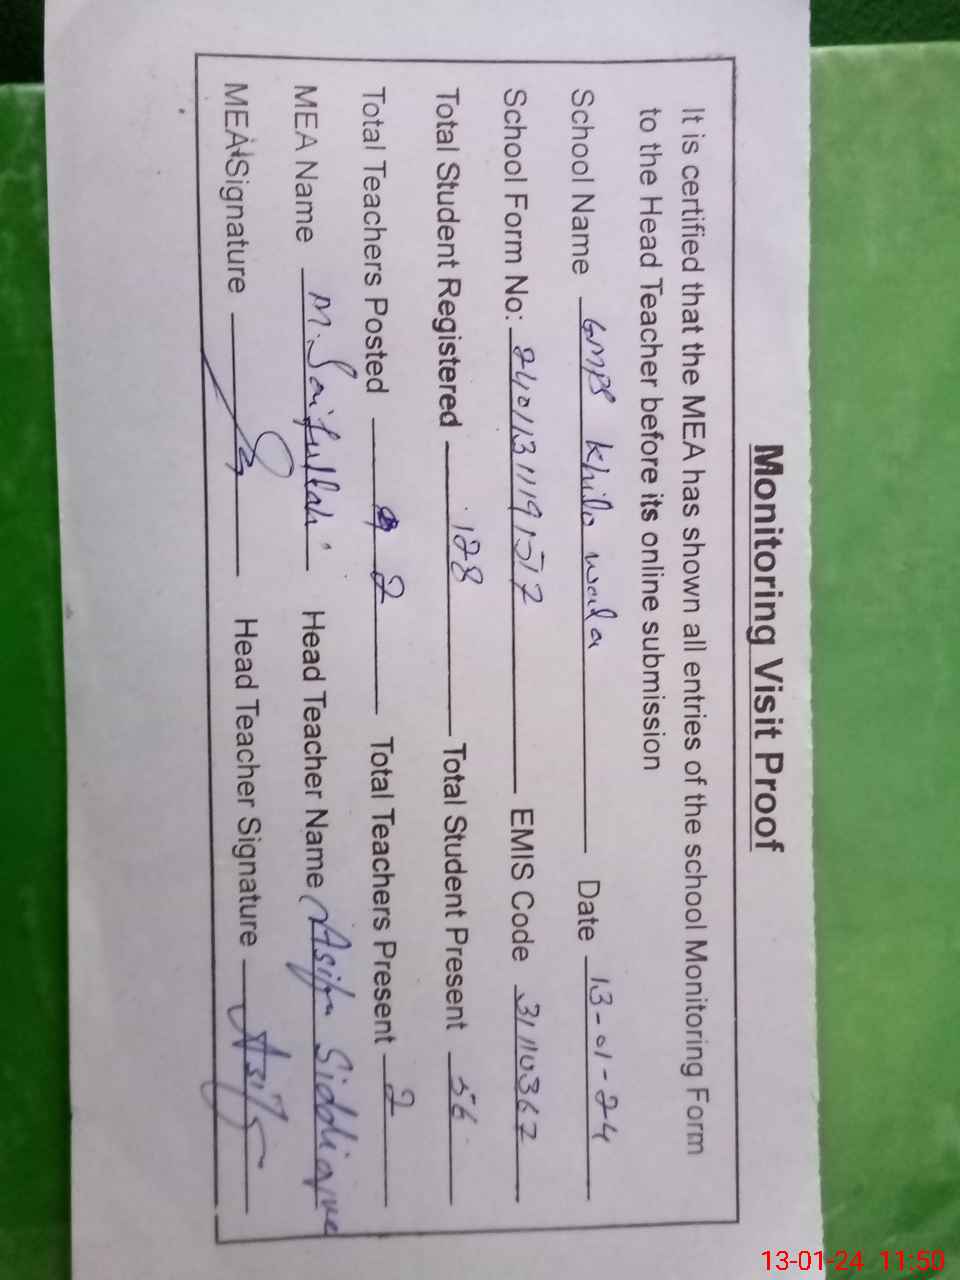 Monitoring Visit Proof
It is certified that the MEA has shown all entries of the school Monitoring Form
to the Head Teacher before its online submission
School Name GMPS Khilu wala Date 13-01-24
School Form No: EMIS Code 31110367
Total Student Registered 128 Total Student Present 56
Total Teachers Posted 2 Total Teachers Present 2
MEA Name M. Saifullah Head Teacher Name Asifa Siddique
MEA Signature Head Teacher Signature Asifa
13-01-24 11:50